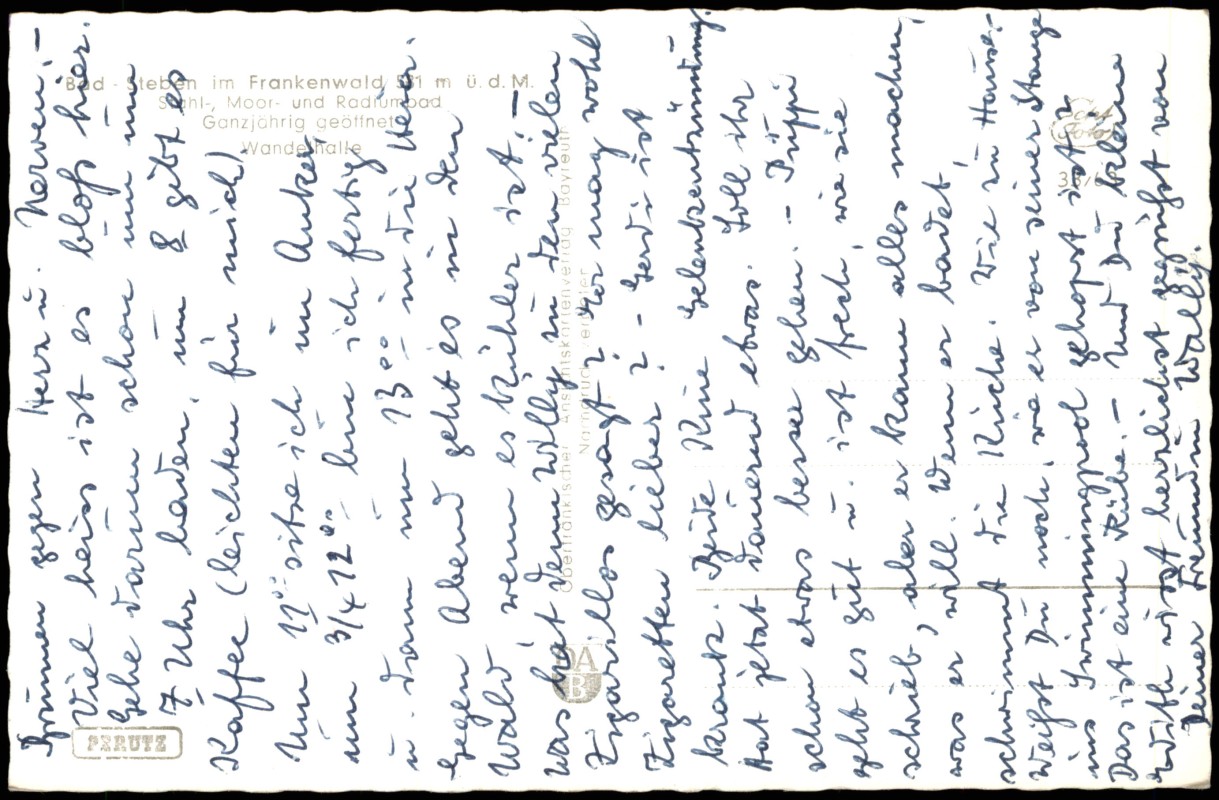 Bad-Steben im Frankenwald 581 m ü.d.M.
Stahl-, Moor- und Radiumbad
Ganzjährig geöffnet
Wandelhalle
Echt Foto
PERUTZ
OAB
Oberfränkischer Ansichtskartenverlag Bayreuth
Nachdruck verboten
Brünnen gegen Herz u. Nerven. –
Viel heiss ist es bloß hier.
Gehe darum schon um um
7 Uhr baden, um 8 gibt es
Kaffee (leichten für mich)
Um 11°° sitze ich im Anker,
um 3/4 12°° bin ich fertig
u. dann um 13°° in die Heia.
Gegen Abend geht es in den
Wald wenn es kühler ist. –
Was hat denn Willy zu den vielen
Zigarillos gesagt? Er mag wohl
Zigaretten lieber? – Gerdi ist
krank. Beide Knie Gelenkentzündung.
Hat jetzt dauernd etwas. Soll ihr
schon etwas besser gehen. – Puppi
geht es gut u. ist frech, wie sie
schrieb, aber er kann alles machen,
was er will. Wenn er badet,
schwimmt die Küche. Wie zu Hause.
Weißt Du noch, wie er von seiner Stange
ins Swimmingpool gehopst ist?
Das ist eine Rübe. – Und Du kleine
Edith nun herzlichst gegrüßt von
Deiner Freundin Wally.